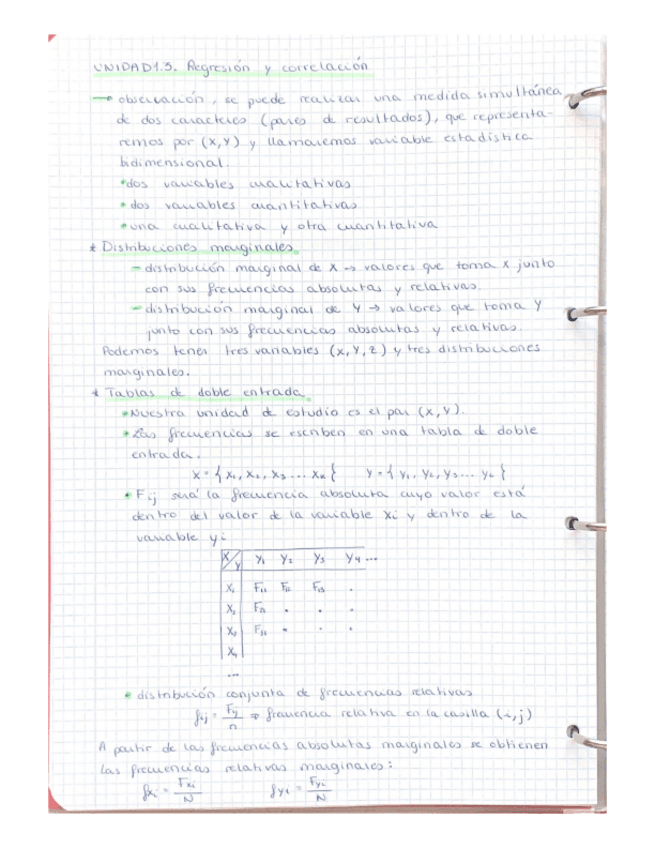 UNIDAD 1.3. Regresión y correlación
→ observación, se puede realizar una medida simultánea
de dos caracteres (pares de resultados), que representa-
remos por (X,Y) y llamaremos variable estadística
bidimensional.
•dos variables cualitativas
• dos variables cuantitativas
•una cualitativa y otra cuantitativa
* Distribuciones marginales.
- distribución marginal de X → valores que toma X junto
con sus frecuencias absolutas y relativas.
- distribución marginal de Y → valores que toma Y
junto con sus frecuencias absolutas y relativas.
Podemos tener tres variables (X,Y,Z) y tres distribuciones
marginales.
* Tablas de doble entrada.
•Nuestra unidad de estudio es el par (X,Y).
•Las frecuencias se escriben en una tabla de doble
entrada.
X = { X₁, X₂, X₃ ... Xₖ } Y = { Y₁, Y₂, Y₃ ... Yₖ }
• Fij será la frecuencia absoluta cuyo valor está
dentro del valor de la variable Xi y dentro de la
variable yi
X/Y Y₁ Y₂ Y₃ Y₄ ...
X₁ F₁₁ F₁₂ F₁₃ .
X₂ F₂₁ . . .
X₃ F₃₁ . . .
X₄
...
• distribución conjunta de frecuencias relativas
fij = Fij/n ⇒ frecuencia relativa en la casilla (i,j)
A partir de las frecuencias absolutas marginales se obtienen
las frecuencias relativas marginales:
fxi = Fxi/N fyi = Fyi/N